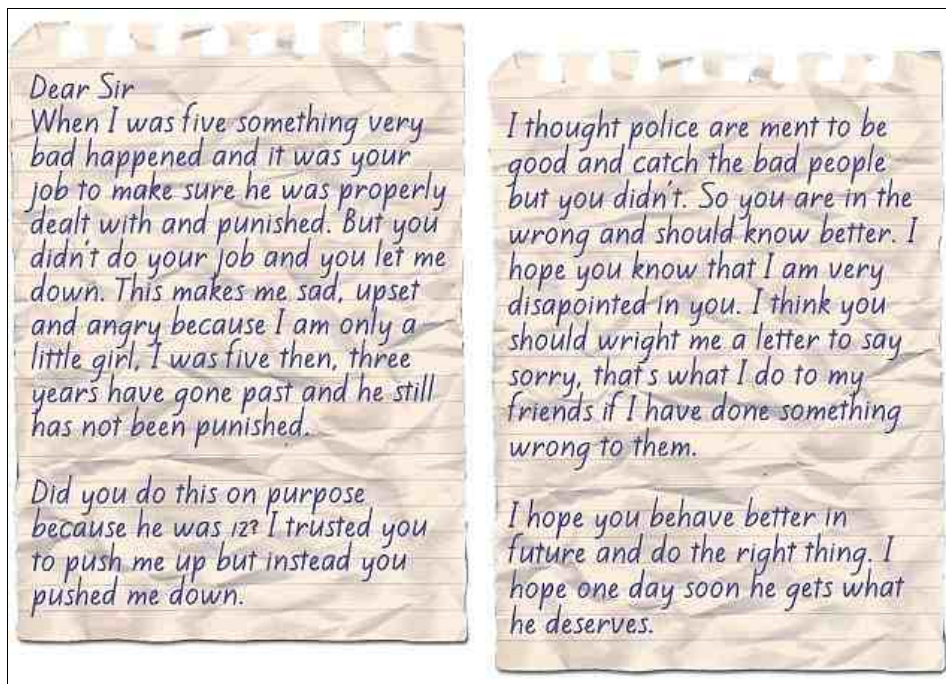 Dear Sir
When I was five something very
bad happened and it was your
job to make sure he was properly
dealt with and punished. But you
didn't do your job and you let me
down. This makes me sad, upset
and angry because I am only a
little girl, I was five then, three
years have gone past and he still
has not been punished.
Did you do this on purpose
because he was 12? I trusted you
to push me up but instead you
pushed me down.
I thought police are ment to be
good and catch the bad people
but you didn't. So you are in the
wrong and should know better. I
hope you know that I am very
disapointed in you. I think you
should wright me a letter to say
sorry, that's what I do to my
friends if I have done something
wrong to them.
I hope you behave better in
future and do the right thing. I
hope one day soon he gets what
he deserves.